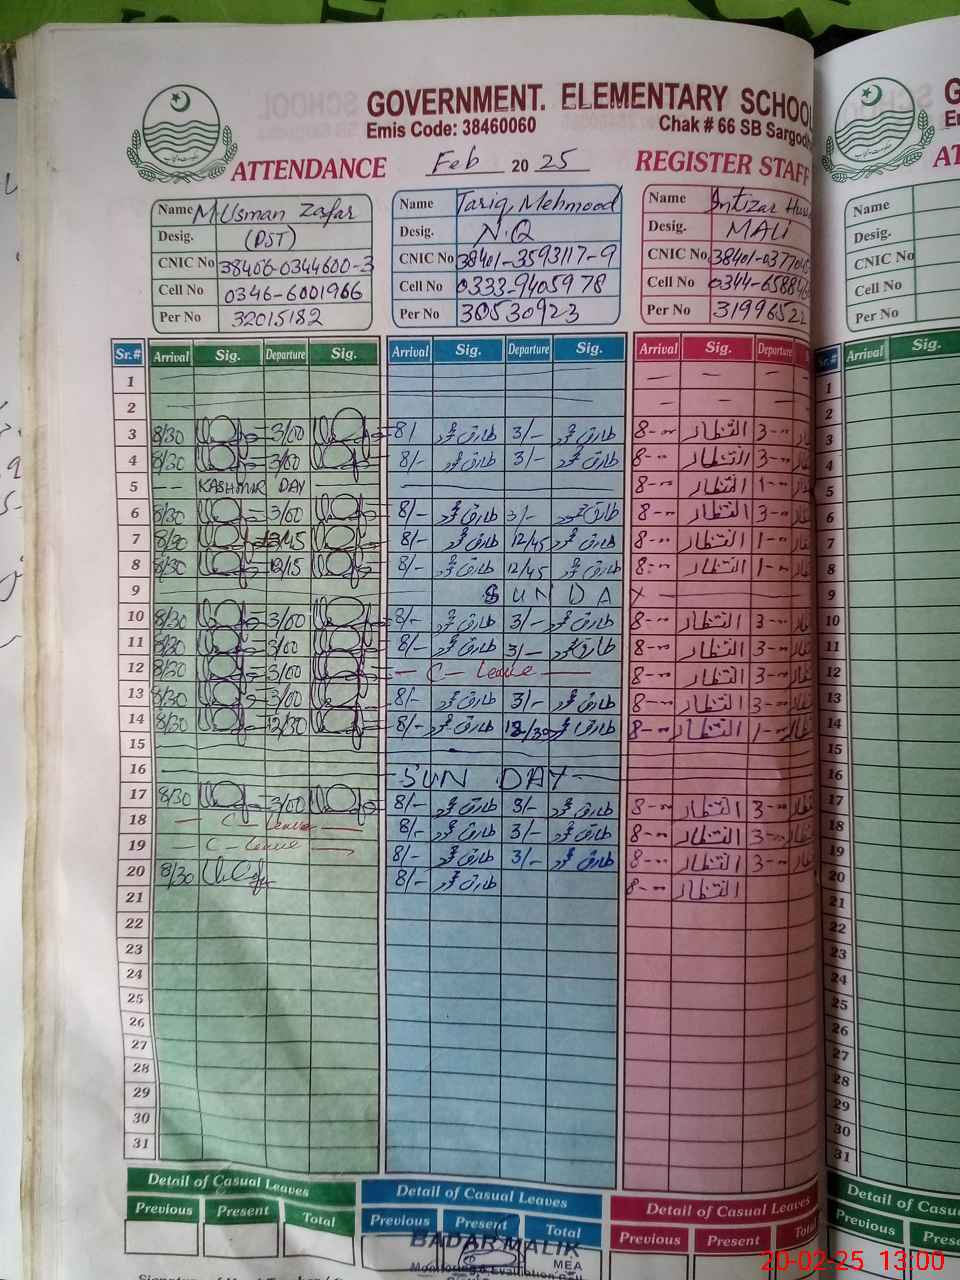 GOVERNMENT. ELEMENTARY SCHOOL
Emis Code: 38460060 Chak # 66 SB Sargodh
ATTENDANCE Feb 20 25 REGISTER STAFF
Name M Usman Zafar
Desig. (PST)
CNIC No 38406-0344600-3
Cell No 0346-6001966
Per No 32015182
Name Tariq Mehmood
Desig. N.Q
CNIC No 38401-3593117-9
Cell No 0333-9405978
Per No 30530923
Name Intizar
Desig. MALI
CNIC No 38401-0377
Cell No 0344-6588
Per No 3199652
Name
Desig.
CNIC No
Cell No
Per No
Sr.# Arrival Sig. Departure Sig. Arrival Sig. Departure Sig. Arrival Sig. Departure Arrival Sig.
1
2
3 8/30 3/00 8/ طارق محمود 3/- طارق محمود 8-- انتظار 3--
4 8/30 3/00 8/- طارق محمود 3/- طارق محمود 8-- انتظار 3--
5 KASHMIR DAY 8-- انتظار 1--
6 8/30 3/00 8/- طارق محمود 3/- طارق محمود 8-- انتظار 3--
7 8/30 12/45 8/- طارق محمود 12/45 طارق محمود 8-- انتظار 1--
8 8/30 8/- طارق محمود 12/45 طارق محمود 8-- انتظار 1--
9 SUNDAY
10 8/30 3/00 8/- طارق محمود 3/- طارق محمود 8-- انتظار 3--
11 8/30 3/00 8/- طارق محمود 3/- طارق محمود 8-- انتظار 3--
12 8/30 3/00 - C - leave - 8-- انتظار 3--
13 8/30 3/00 8/- طارق محمود 3/- طارق محمود 8-- انتظار 3--
14 8/30 12/30 8/- طارق محمود 12/30 طارق محمود 8-- انتظار 1--
15
16 SUN DAY
17 8/30 3/00 8/- طارق محمود 3/- طارق محمود 8-- انتظار 3--
18 - C - leave - 8/- طارق محمود 3/- طارق محمود 8-- انتظار 3--
19 - C - leave - 8/- طارق محمود 3/- طارق محمود 8-- انتظار 3--
20 8/30 8/- طارق محمود 8-- انتظار
21
22
23
24
25
26
27
28
29
30
31
Detail of Casual Leaves Detail of Casual Leaves Detail of Casual Leaves Detail of
Previous Present Total Previous Present Total Previous Present Previous
BADAR MALIK
MEA
Monitoring & Evaluation Cell
20-02-25 13:00